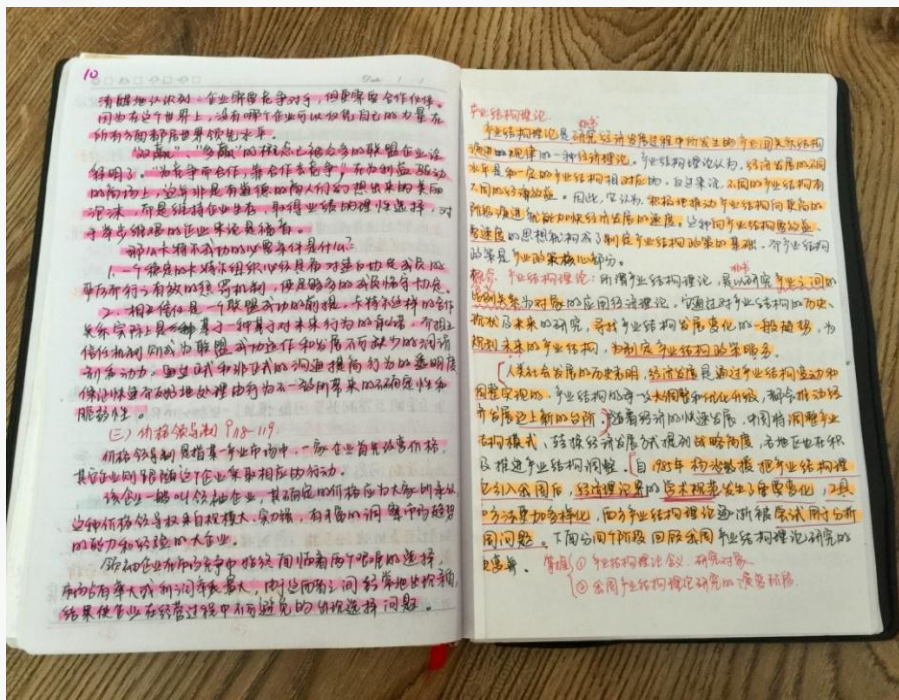 10
Date
清醒地认识到,企业需要竞争对手,但更需要合作伙伴。
因为在这个世界上,没有哪个企业可以仅凭自己的力量在
所有方面都居世界领先水平。
"双赢"、"多赢"的概念已被众多的联盟企业
证明了。为竞争而合作,靠合作去竞争,在为利益驱动
的商场上,这并非是有道德的商人们幻想出来的美丽
泡沫,而是维持企业生存,取得业绩的理性选择,对
于举步维艰的企业来说是福音。
那么卡特尔成功的必要条件是什么?
1.一个稳定的卡特尔组织必须具有对违约协定成员的
实行有效的惩罚机制,使足够多的成员恪守协定。
2.相互信任是一个联盟成功的前提。卡特尔这样的合作
关系实际上是基于一种基于对未来行为的承诺。而相互
信任机制则成为联盟成功运作和发展不可缺少的润滑
剂和动力。通过正式和非正式的沟通提高行为的透明度
行为不一致所带来的不确定性和
脆弱性。
(三)价格领导制 P118-119
价格领导制是指某一产业市场中,一家企业首先改变价格,
其它企业则跟随这个企业采取相应的行动。
该企业一般叫领袖企业,其确定的价格应为大家所承认
这种价格领导权来自规模大、实力强,有丰富的洞察市场趋势
的能力和经验的大企业。
领袖企业在市场竞争中始终面临着两个艰难的选择,
市场占有率大或利润率最大,两者之间经常地出现矛盾,
结果使企业在经营过程中不可避免的价格选择问题。
产业结构理论
产业结构理论是研究经济发展过程中所发生的产业间关系结构
演进的规律的一种经济理论。产业结构理论认为,经济发展的不同
水平是和一定的产业结构相对应的,反过来说,不同的产业结构有
不同的经济效益。因此,它认为,积极地推动产业结构向更高的
阶段演进就能加快经济发展的速度。这种向产业结构要效益、
要速度的思想就构成了制定产业结构政策的基础,而产业结构
政策是产业政策核心部分。
概念:产业结构理论:所谓产业结构理论,是以研究产业之间的
比例关系为对象的应用经济理论,它通过对产业结构的历史、
现状及未来的研究,寻找产业结构发展变化的一般趋势,为
规划未来的产业结构,为制定产业结构政策服务。
人类社会发展的历史表明,经济发展是通过产业结构变动和
调整实现的,产业结构的每一次大调整和优化升级,都会推动经
济发展迈上新的台阶。随着经济的快速发展,中国将调整产业
结构模式,转换经济发展方式提到战略高度,各地正在积
极推进产业结构调整。自1985年杨治教授把产业结构理
论引入我国后,经济理论界的学术视角发生了重要变化,工具
和方法更加多样化,西方产业结构理论逐渐被尝试用于分析
中国问题。下面分四个阶段回顾我国产业结构理论研究的
掌握
①产业结构理论含义、研究对象
②我国产业结构理论研究的演变阶段